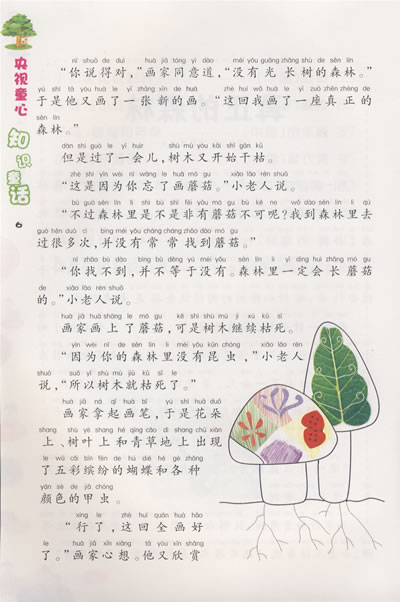 央视童心
知识童话
6
nǐ shuō de duì huà jiā tóng yì dào méi yǒu guāng zhǎng shù de sēn lín
“你说得对，”画家同意道，“没有光长树的森林。”
yú shì tā yòu huà le yì zhāng xīn de huà zhè huí wǒ huà le yí zuò zhēn zhèng de
于是他又画了一张新的画。“这回我画了一座真正的
sēn lín
森林。”
dàn shì guò le yí huìr shù mù yòu kāi shǐ gān kū
但是过了一会儿，树木又开始干枯。
zhè shì yīn wèi nǐ wàng le huà mó gu xiǎo lǎo rén shuō
“这是因为你忘了画蘑菇。”小老人说。
bú guò sēn lín lǐ shì bú shì fēi yǒu mó gu bù kě ne wǒ dào sēn lín lǐ qù
“不过森林里是不是非有蘑菇不可呢？我到森林里去
guò hěn duō cì bìng méi yǒu cháng cháng zhǎo dào mó gu
过很多次，并没有常常找到蘑菇。”
nǐ zhǎo bú dào bìng bù děng yú méi yǒu sēn lín lǐ yí dìng huì zhǎng mó gu
“你找不到，并不等于没有。森林里一定会长蘑菇
de xiǎo lǎo rén shuō
的。”小老人说。
huà jiā huà shàng le mó gu kě shì shù mù jì xù kū sǐ
画家画上了蘑菇，可是树木继续枯死。
yīn wèi nǐ de sēn lín lǐ méi yǒu kūn chóng xiǎo lǎo rén
“因为你的森林里没有昆虫，”小老人
shuō suǒ yǐ shù mù jiù kū sǐ le
说，“所以树木就枯死了。”
huà jiā ná qǐ huà bǐ yú shì huā duǒ
画家拿起画笔，于是花朵
shang shù yè shang hé qīng cǎo dì shang chū xiàn
上、树叶上和青草地上出现
le wǔ cǎi bīn fēn de hú dié hé gè zhǒng
了五彩缤纷的蝴蝶和各种
yán sè de jiǎ chóng
颜色的甲虫。
xíng le zhè huí quán huà hǎo
“行了，这回全画好
le huà jiā xīn xiǎng tā yòu xīn shǎng
了。”画家心想。他又欣赏